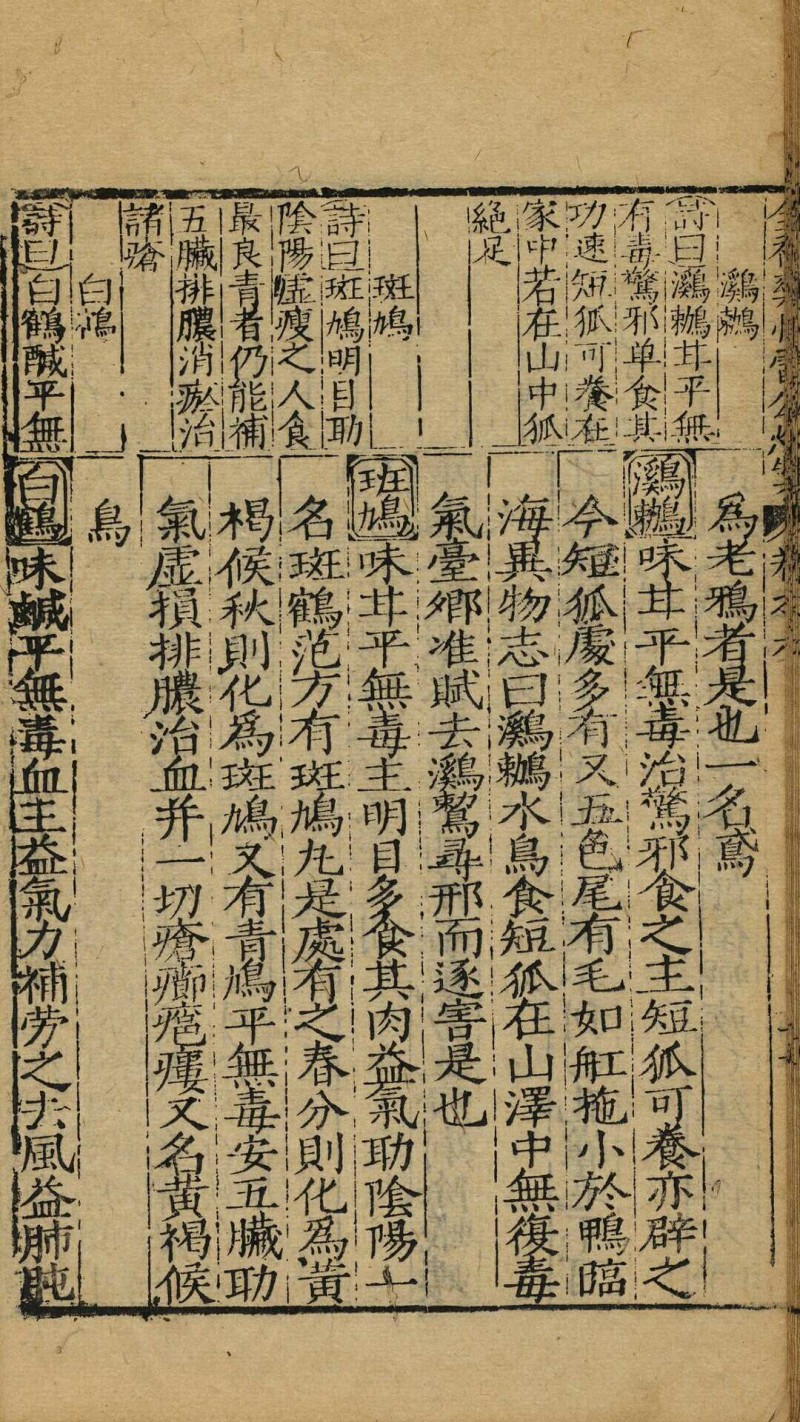 鸂鶒
詩曰鸂鶒甘平無
有毒驚邪单食其
功速短狐可養在
家中若在山中狐
絕足
斑鳩
詩曰斑鳩明目助
陰陽虛瘦之人食
最良青者仍能補
五臟排膿消瘀治
諸瘡
白鶴
詩曰白鶴醎平無
為老鴉者是也一名鳶
鸂鶒味甘平無毒治驚邪食之主短狐可養亦辟之
今短狐處多有又五色尾有毛如舡拖小於鴨臨
海異物志曰鸂鶒水鳥食短狐在山澤中無復毒
氣臺鄉准賦去鸂鶩尋邢而逐害是也
斑鳩味甘平無毒主明目多食其肉益氣助陰陽一
名斑鶴范方有斑鳩丸是處有之春分則化為黃
楬候秋則化為斑鳩又有青鳩平無毒安五臟助
氣虛損排膿治血并一切瘡癤瘻又名黃褐候
鳥
白鶴味鹹平無毒血主益氣力補劳之去風益肺肫